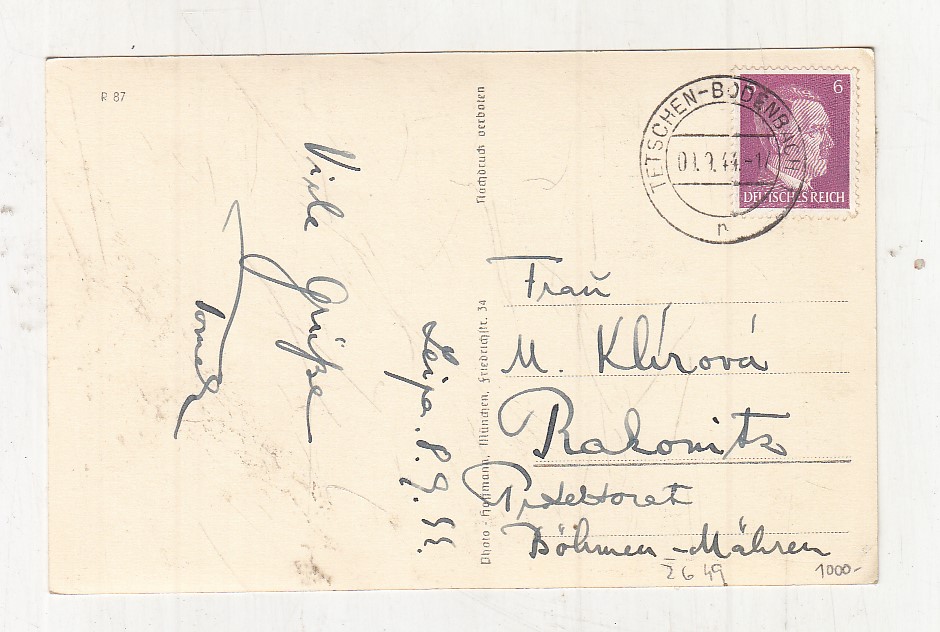 R 87
Viele
Grüße
Tomek
Leipa. 8. 9. 44.
Photo - Hoffmann, München, Friedrichstr. 34
Nachdruck verboten
TETSCHEN-BODENBACH
n
6
DEUTSCHES REICH
Frau
M. Klírová
Rakonitz
Protektorat
Böhmen-Mähren
2649
1000-